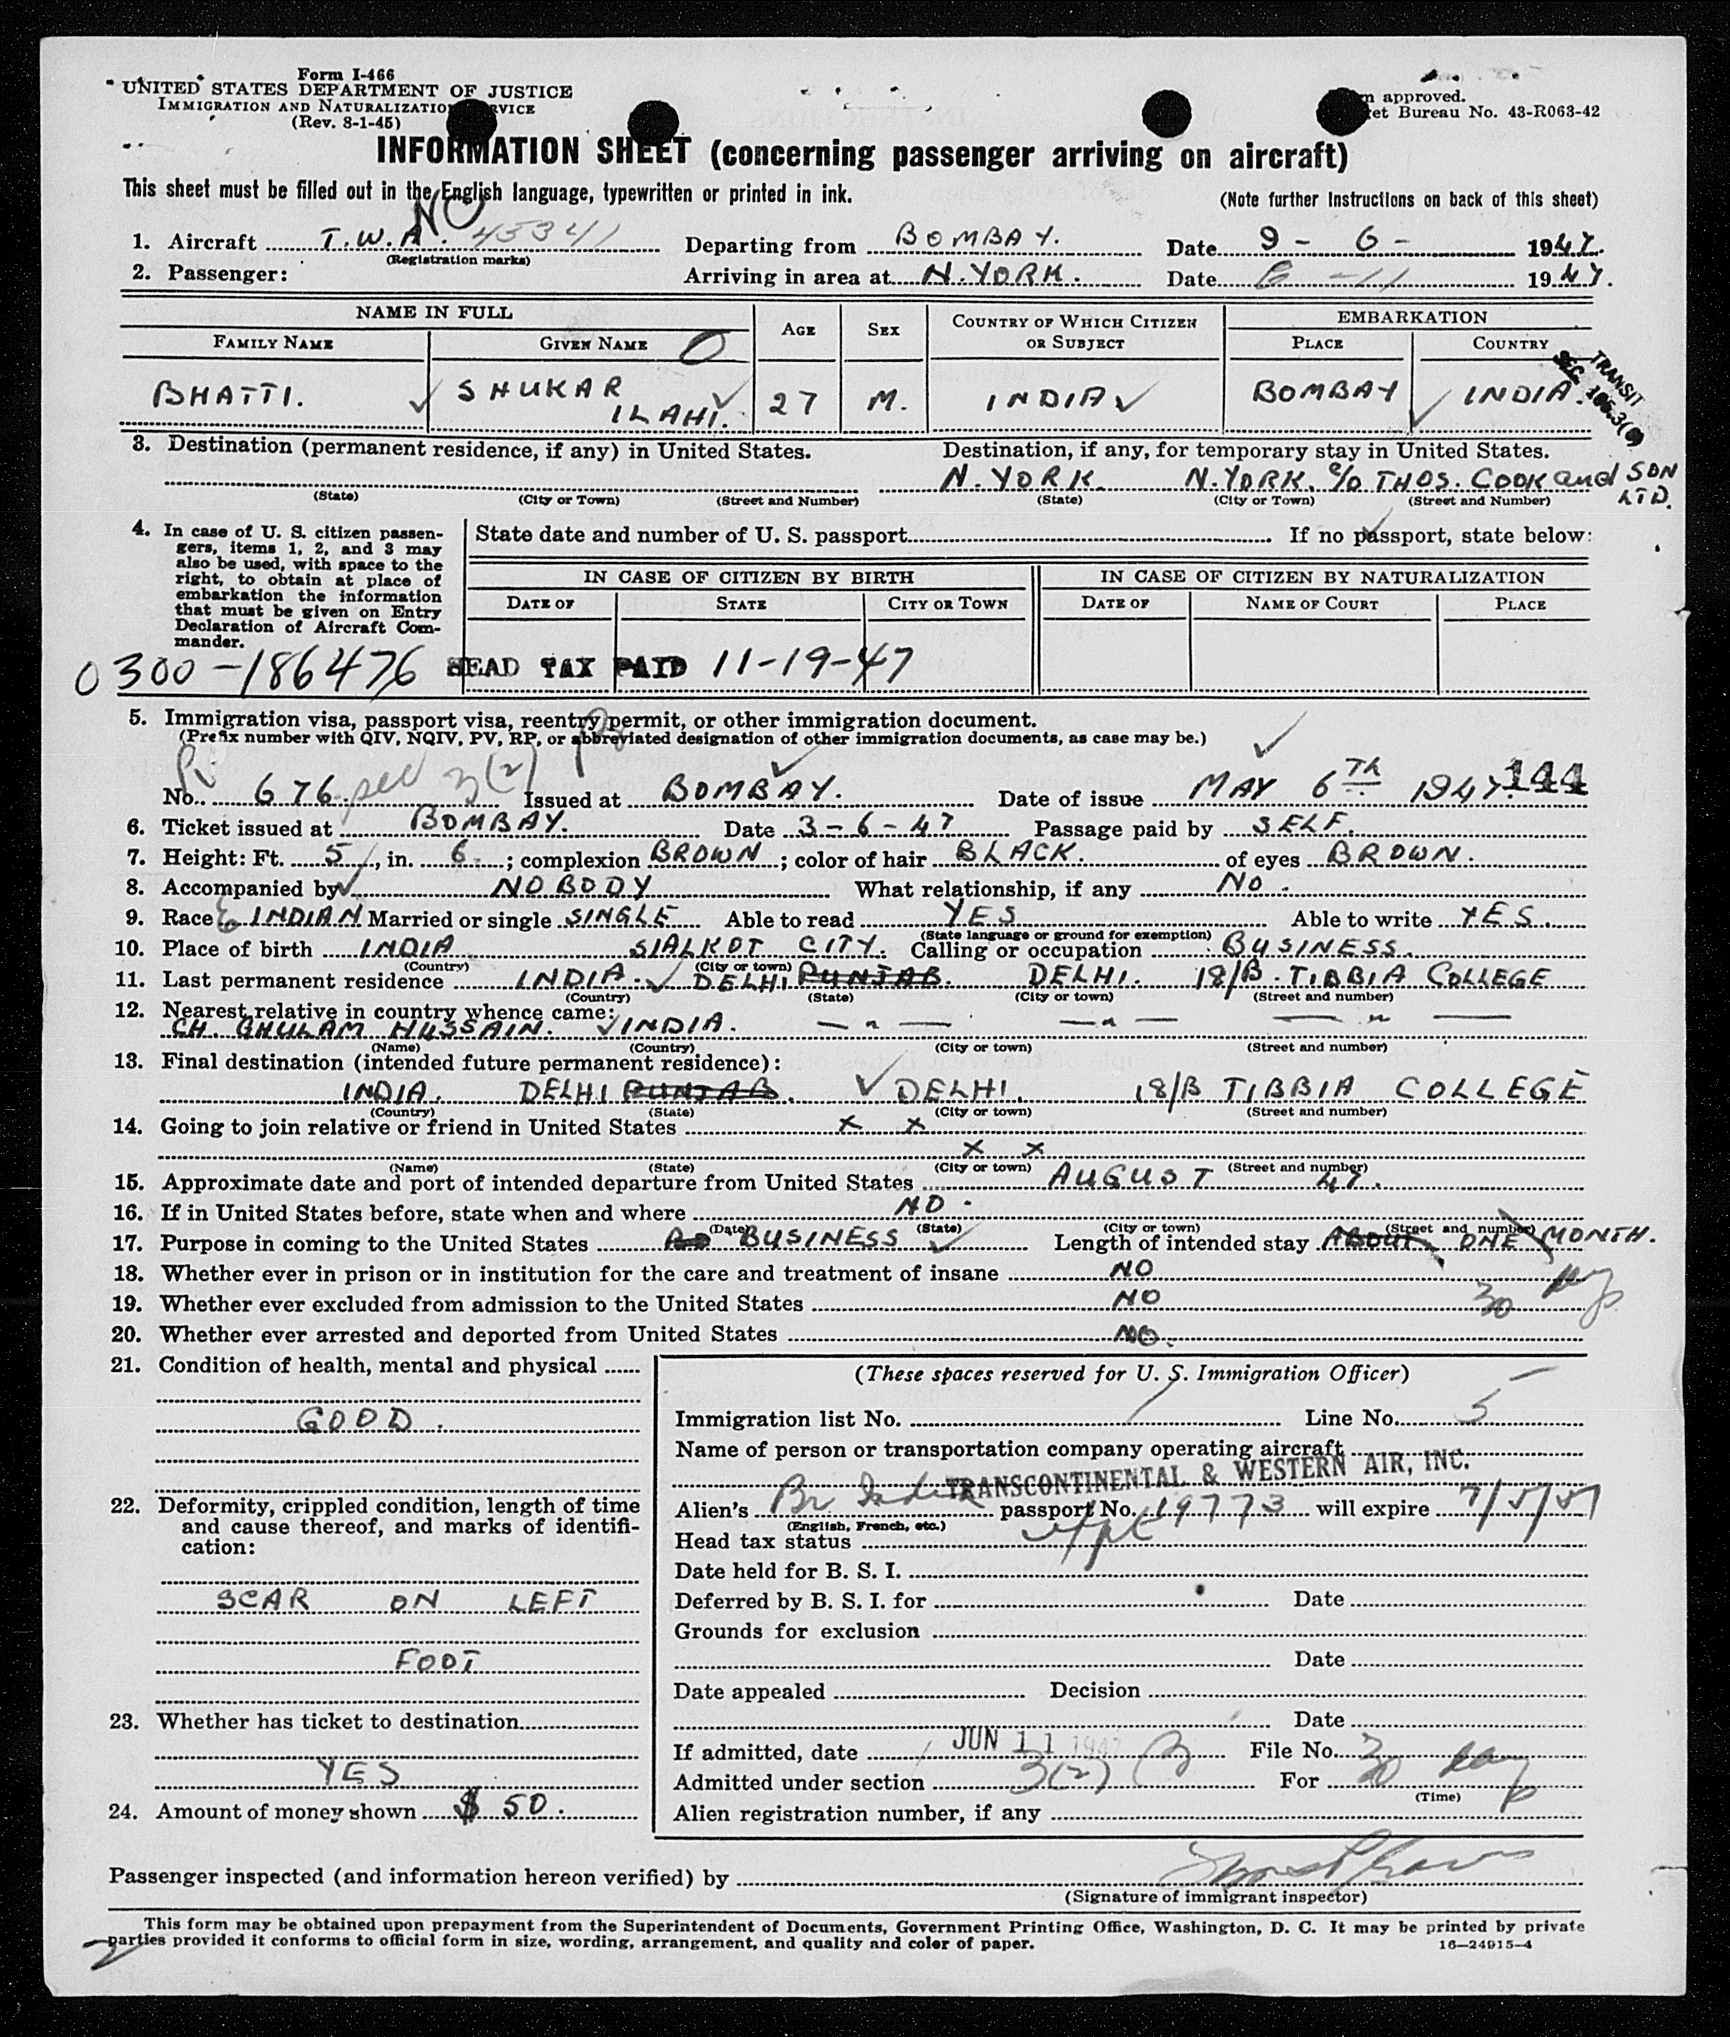 Form I-466
UNITED STATES DEPARTMENT OF JUSTICE
IMMIGRATION AND NATURALIZATION SERVICE
(Rev. 8-1-45)
approved.
et Bureau No. 43-R063-42
INFORMATION SHEET (concerning passenger arriving on aircraft)
This sheet must be filled out in the English language, typewritten or printed in ink.
(Note further Instructions on back of this sheet)
NO
1. Aircraft T.W.A. 45341 Departing from BOMBAY. Date 9 - 6 - 1947.
(Registration marks)
2. Passenger: Arriving in area at N.YORK. Date 6 - 11 1947.
NAME IN FULL AGE SEX COUNTRY OF WHICH CITIZEN OR SUBJECT EMBARKATION
FAMILY NAME GIVEN NAME PLACE COUNTRY
BHATTI. SHUKAR ILAHI. 27 M. INDIA BOMBAY INDIA.
TRANSIT
SEC. 105.3(c)
3. Destination (permanent residence, if any) in United States. Destination, if any, for temporary stay in United States.
N. YORK. N.YORK. c/o THOS. COOK and SON LTD.
(State) (City or Town) (Street and Number) (State) (City or Town) (Street and Number)
4. In case of U. S. citizen passengers, items 1, 2, and 3 may also be used, with space to the right, to obtain at place of embarkation the information that must be given on Entry Declaration of Aircraft Commander.
State date and number of U. S. passport If no passport, state below:
IN CASE OF CITIZEN BY BIRTH IN CASE OF CITIZEN BY NATURALIZATION
DATE OF STATE CITY OR TOWN DATE OF NAME OF COURT PLACE
0300-186476 HEAD TAX PAID 11-19-47
5. Immigration visa, passport visa, reentry permit, or other immigration document.
(Prefix number with QIV, NQIV, PV, RP, or abbreviated designation of other immigration documents, as case may be.)
No. 676. sec 3(2) Issued at BOMBAY. Date of issue MAY 6th 1947. 144
6. Ticket issued at BOMBAY. Date 3-6-47 Passage paid by SELF.
7. Height: Ft. 5, in. 6.; complexion BROWN; color of hair BLACK. of eyes BROWN.
8. Accompanied by NOBODY What relationship, if any NO.
9. Race INDIAN Married or single SINGLE Able to read YES Able to write YES.
(State language or ground for exemption)
10. Place of birth INDIA SIALKOT CITY. Calling or occupation BUSINESS.
(Country) (City or town)
11. Last permanent residence INDIA. DELHI PUNJAB. DELHI. 18/B. TIBBIA COLLEGE
(Country) (State) (City or town) (Street and number)
12. Nearest relative in country whence came:
CH. GHULAM HUSSAIN. INDIA. — " — — " — — " —
(Name) (Country) (City or town) (Street and number)
13. Final destination (intended future permanent residence):
INDIA. DELHI PUNJAB. DELHI. 18/B TIBBIA COLLEGE
(Country) (State) (City or town) (Street and number)
14. Going to join relative or friend in United States x x
x x
(Name) (State) (City or town) (Street and number)
15. Approximate date and port of intended departure from United States AUGUST 47.
16. If in United States before, state when and where NO.
(Date) (State) (City or town) (Street and number)
17. Purpose in coming to the United States BUSINESS Length of intended stay ABOUT ONE MONTH.
18. Whether ever in prison or in institution for the care and treatment of insane NO
19. Whether ever excluded from admission to the United States NO 30 days
20. Whether ever arrested and deported from United States NO.
21. Condition of health, mental and physical
GOOD.
22. Deformity, crippled condition, length of time and cause thereof, and marks of identification:
SCAR ON LEFT
FOOT
23. Whether has ticket to destination
YES
24. Amount of money shown $ 50.
(These spaces reserved for U. S. Immigration Officer)
Immigration list No. 1 Line No. 5
Name of person or transportation company operating aircraft
TRANSCONTINENTAL & WESTERN AIR, INC.
Alien's Br Indian passport No. 19773 will expire 7/5/51
(English, French, etc.)
Head tax status
Date held for B. S. I.
Deferred by B. S. I. for Date
Grounds for exclusion
Date
Date appealed Decision
Date
If admitted, date JUN 11 1947 File No.
Admitted under section 3(2) For 30 days
(Time)
Alien registration number, if any
Passenger inspected (and information hereon verified) by
(Signature of immigrant inspector)
This form may be obtained upon prepayment from the Superintendent of Documents, Government Printing Office, Washington, D. C. It may be printed by private
parties provided it conforms to official form in size, wording, arrangement, and quality and color of paper. 16—24915-4
2